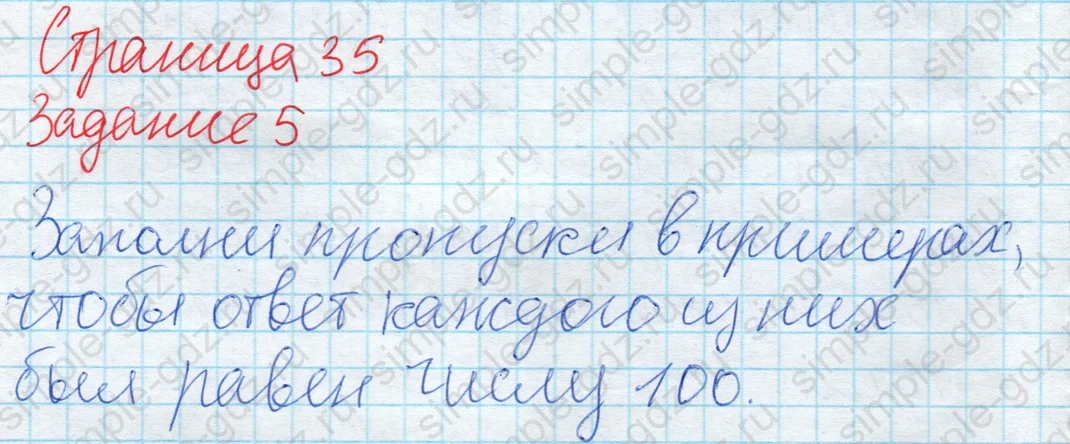 Страница 35
Задание 5
Заполни пропуски в примерах,
чтобы ответ каждого из них
был равен числу 100.
simple-gdz.ru